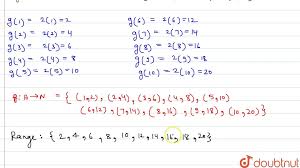 g(1) = 2(1) = 2 g(6) = 2(6) = 12
g(2) = 2(2) = 4 g(7) = 2(7) = 14
g(3) = 2(3) = 6 g(8) = 2(8) = 16
g(4) = 2(4) = 8 g(9) = 2(9) = 18
g(5) = 2(5) = 10 g(10) = 2(10) = 20
A→N = { (1,2), (2,4), (3,6), (4,8), (5,10)
(6,12), (7,14), (8,16), (9,18), (10,20) }
Range : { 2, 4, 6, 8, 10, 12, 14, 16, 18, 20 }
doubtnut